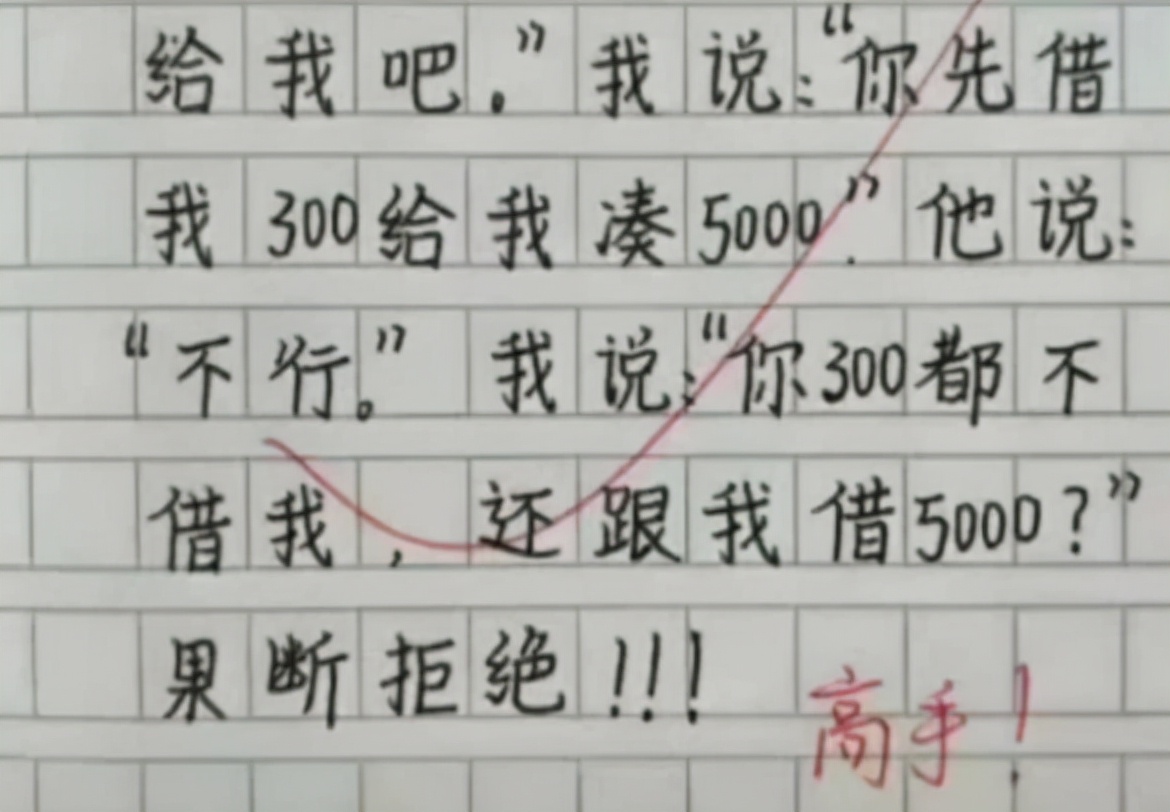 给我吧。”我说：“你先借
我300给我凑5000.”他说：
“不行。”我说：“你300都不
借我，还跟我借5000？”
果断拒绝！！！
高手！